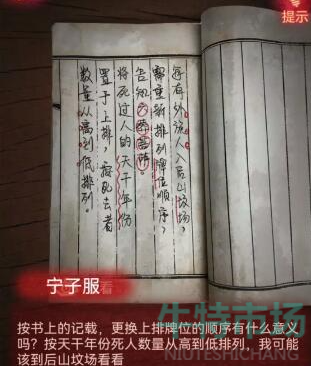 提示
每有外族人入后山坟场，
需重新排列牌位顺序，
告知六
将死过人的天干年份
置于上排，按死去者
数量从高到低排列。
宁子服
看
牛特市场
NIUTESHICHANG
按书上的记载，更换上排牌位的顺序有什么意义
吗？按天干年份死人数量从高到低排列，我可能
该到后山坟场看看